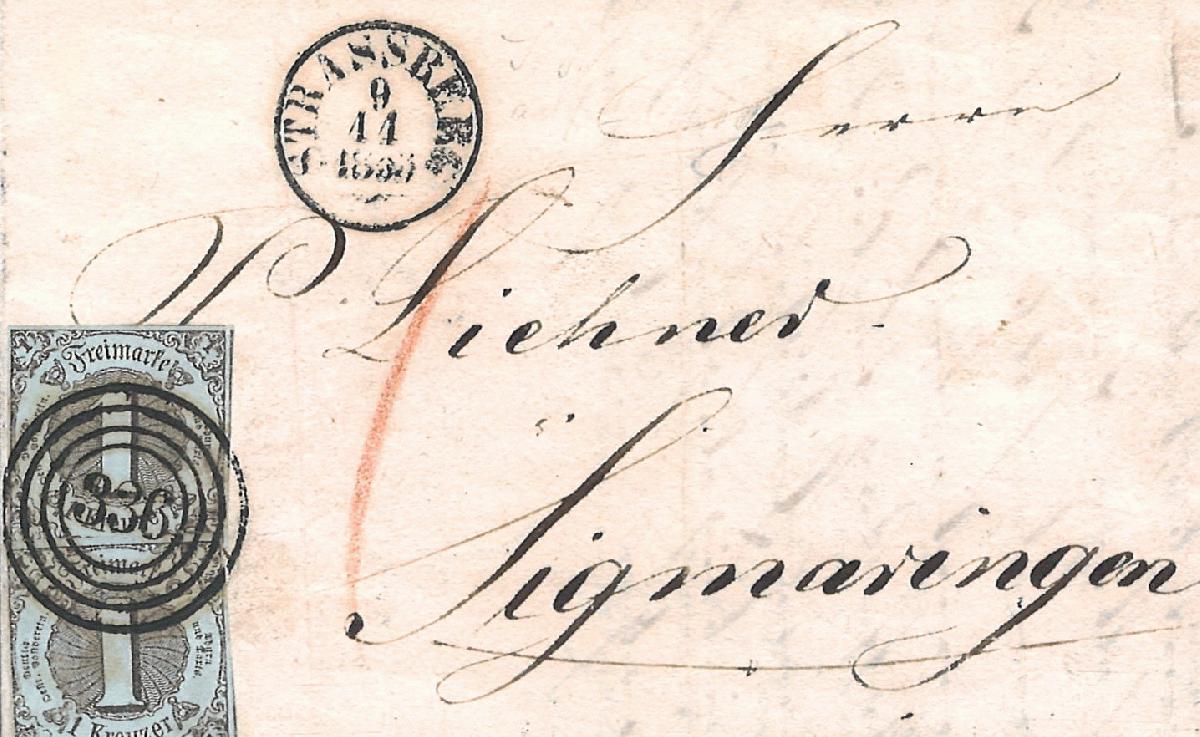 STRASSBERG
9
11
Herrn
P. Liehner
Sigmaringen
Freimarke
336
1 Kreuzer